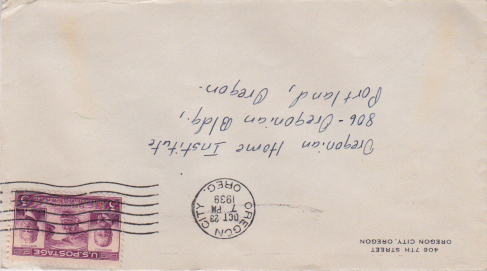 406 7TH STREET
OREGON CITY, OREGON
OREGON CITY
OCT 23
7 PM
1939
OREG.
U.S. POSTAGE
3¢
Oregonian Home Institute
806 - Oregonian Bldg.,
Portland, Oregon.